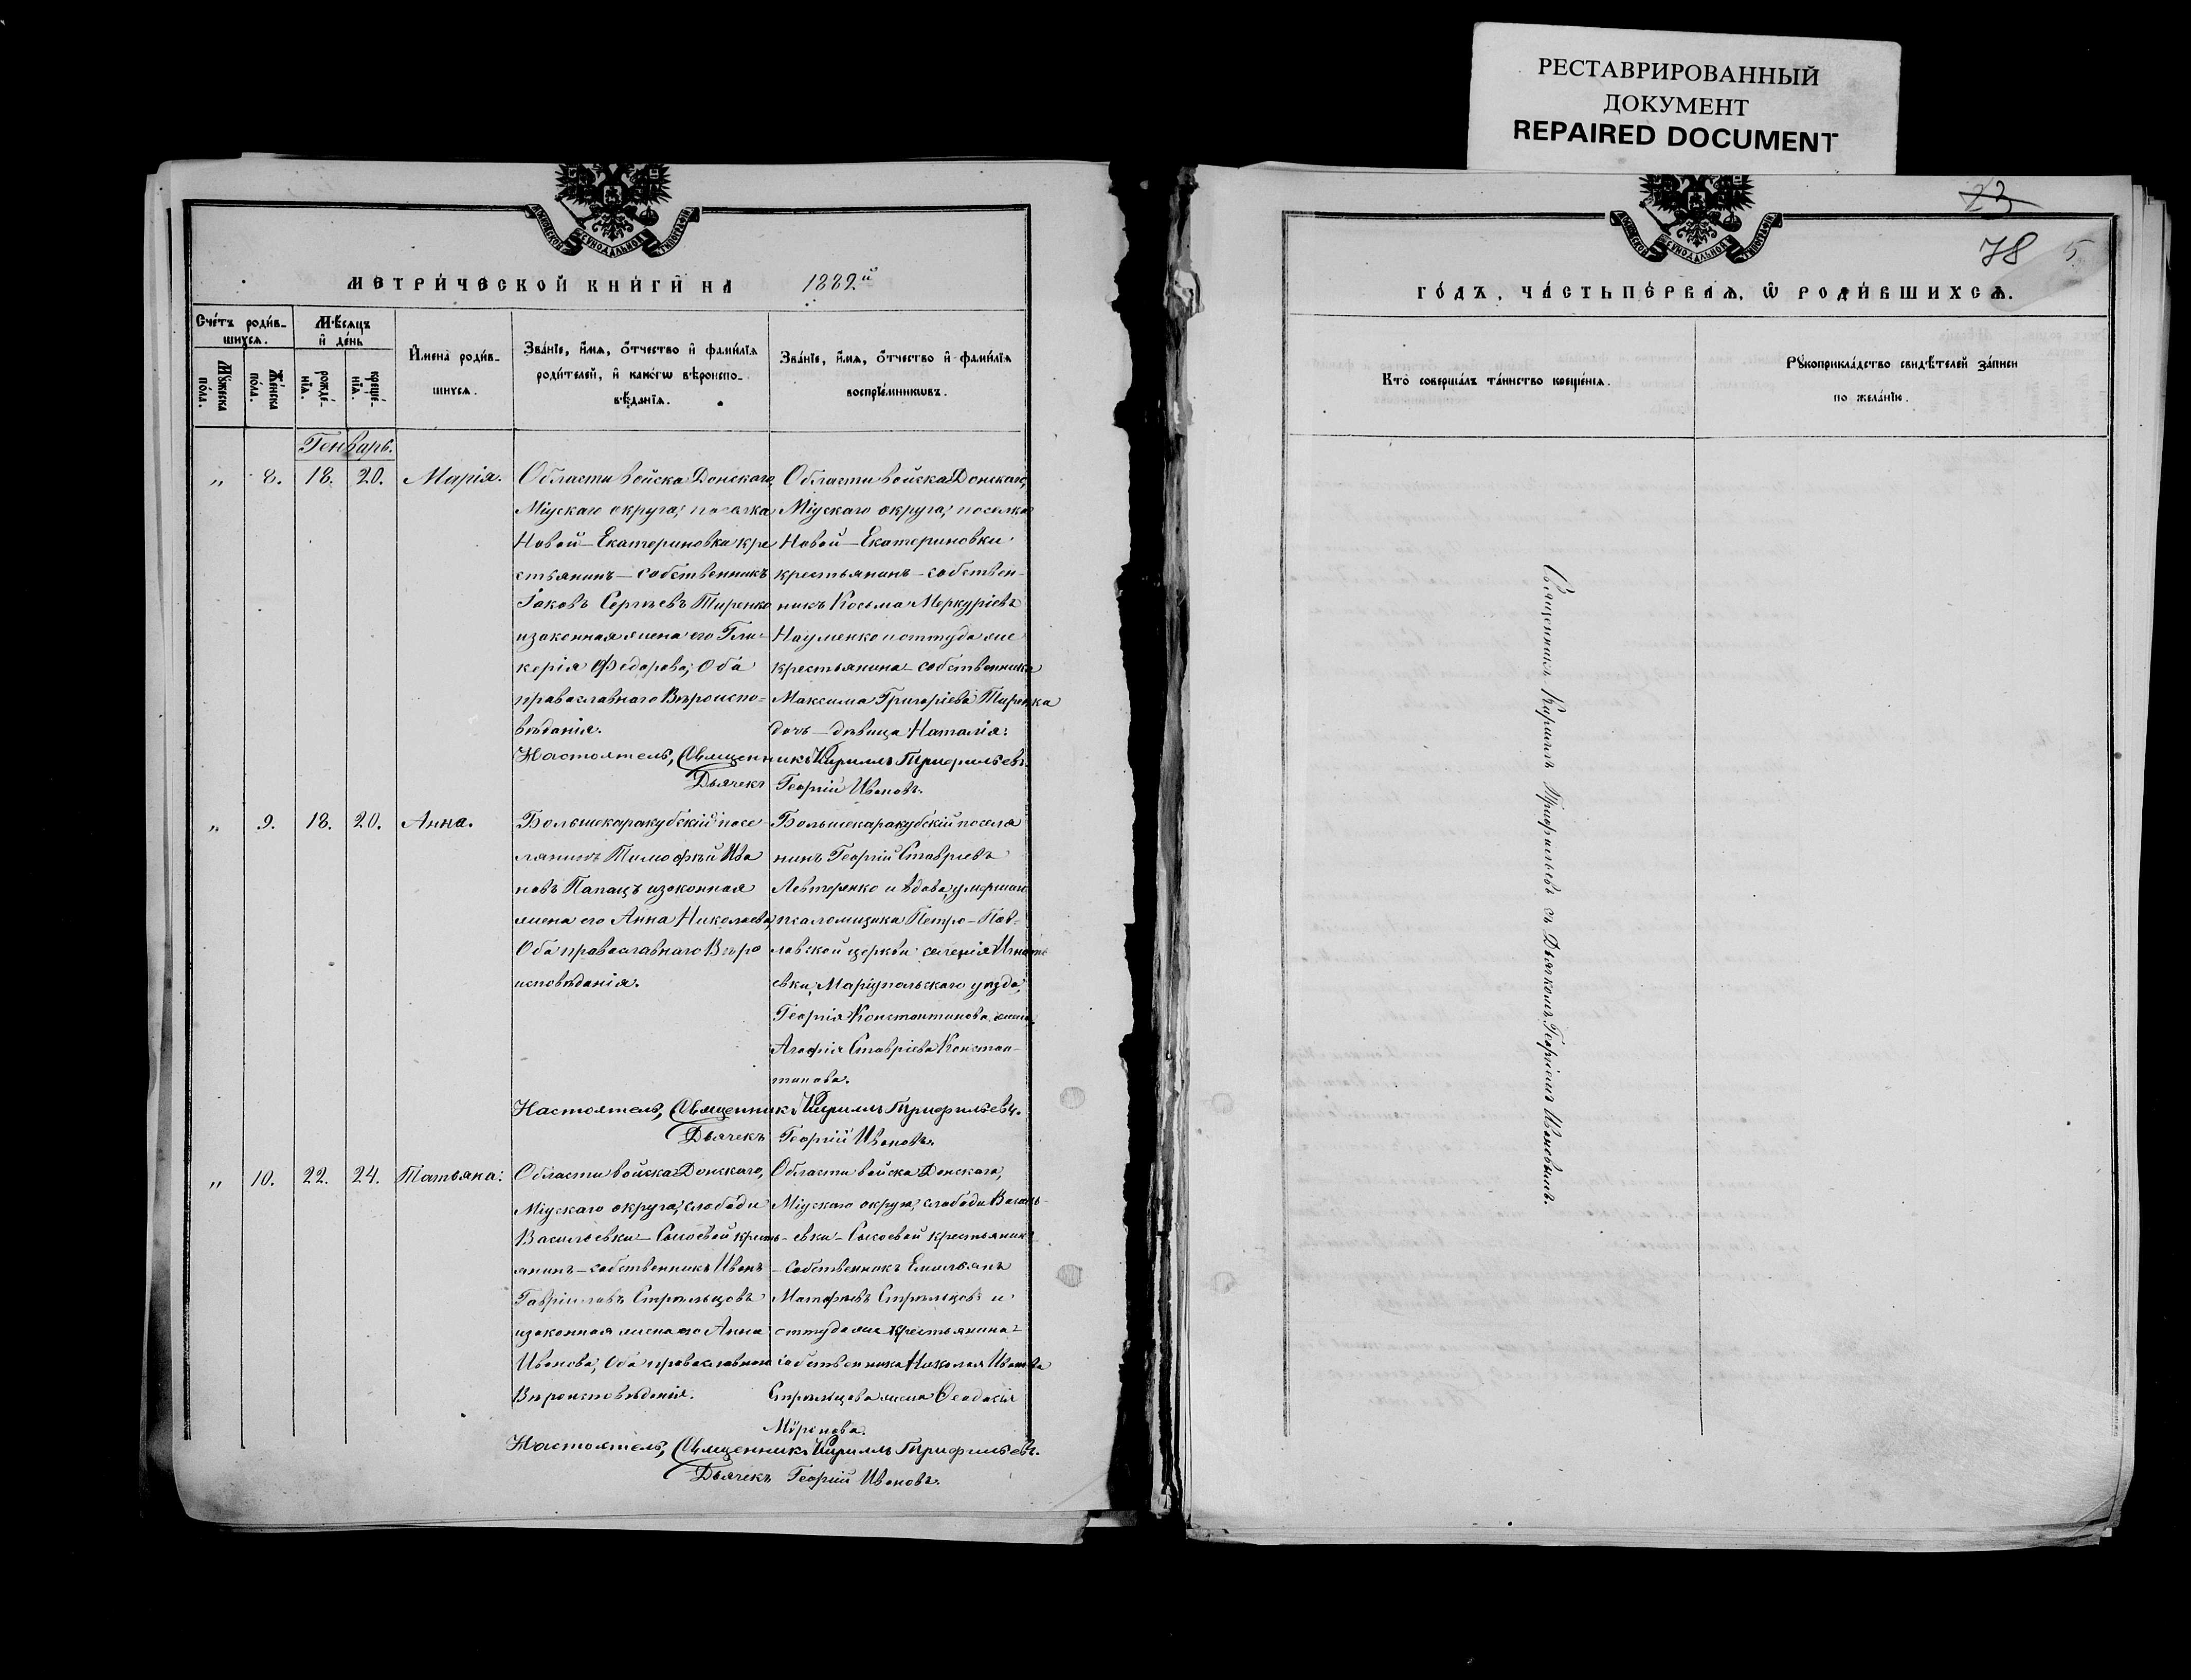 РЕСТАВРИРОВАННЫЙ
ДОКУМЕНТ
REPAIRED DOCUMENT
МОСКОВСКОЙ СѴНОДАЛЬНОЙ ТИПОГРАФІИ
МЕТРИ́ЧЕСКОЙ КНИ́ГИ НА 1882й
Сче́тъ роди́в-
шихся.
Мѣ́сяцъ
и҆ де́нь
Мꙋ́жеска
по́ла.
Же́нска
по́ла.
рожде́-
нїѧ.
креще́-
нїѧ.
И҆мена̀ роди́в-
шихсѧ.
Зва́нїе, и҆́мѧ, о҆́тчество и҆ фами́лїѧ
роди́телей, и҆ како́гѡ вѣроиспо-
вѣ́данїѧ.
Зва́нїе, и҆́мѧ, о҆́тчество и҆ фами́лїѧ
воспрїе́мникѡвъ.
Генварь.
„ 8. 18. 20. Марія.
Области войска Донскаго,
Міускаго округа, поселка
Новой-Екатериновки кре
стьянинъ-собственникъ
Іаковъ Сергѣевъ Тиренко
и законная жена его Гли-
керія Федорова; Оба
православнаго Вѣроиспо-
вѣданія.
Области войска Донскаго,
Міускаго округа, поселка
Новой-Екатериновки
крестьянинъ-собствен-
никъ Косьма Меркуріевъ
Науменко и оттуда же
крестьянина-собственника
Максима Григоріева Тиренка
дочь-дѣвица Наталія.
Настоятель, Священникъ Кириллъ Трифильевъ.
Дьячекъ Георгій Ивановъ.
„ 9. 18. 20. Анна.
Большекаракубскій посе
лянинъ Тимофѣй Ива
новъ Папацъ и законная
жена его Анна Николаева,
Оба православнаго Вѣро
исповѣданія.
Большекаракубскій поселя
нинъ Георгій Ставріевъ
Левтеренко и вдова, умершаго
псаломщика Петро-Пав-
ловской церкви селенія Игнать
евки, Маріупольскаго уѣзда,
Георгія Константинова жена,
Агафія Ставріева Констан-
тинова.
Настоятель, Священникъ Кириллъ Трифильевъ.
Дьячекъ Георгій Ивановъ.
„ 10. 22. 24. Татьяна.
Области войска Донскаго,
Міускаго округа, слободи
Васильевки-Сысоевой кресть-
янинъ-собственникъ Иванъ
Гавріиловъ Стрѣльцовъ
и законная жена его Анна
Иванова, Оба православнаго
Вѣроисповѣданія.
Области войска Донскаго,
Міускаго округа, слободи Василь-
евки-Сысоевой крестьянинъ
-собственникъ Емильянъ
Матфѣевъ Стрѣльцовъ и
оттуда же крестьянина-
собственника Николая Иванова
Стрѣльцова жена Ѳеодосія
Миронова.
Настоятель, Священникъ Кириллъ Трифильевъ.
Дьячекъ Георгій Ивановъ.
МОСКОВСКОЙ СѴНОДАЛЬНОЙ ТИПОГРАФІИ
23
78 5
ГО́ДЪ, ЧА́СТЬ ПЕ́РВАѦ, Ѡ҆ РОДИ́ВШИХСѦ.
Кто̀ соверша́лъ та́инство креще́нїѧ.
Рꙋкоприкла́дство свидѣ́телей за́писи
по жела́нїю.
Священникъ Кириллъ Трифильевъ съ Дьячкомъ Георгіемъ Ивановымъ.